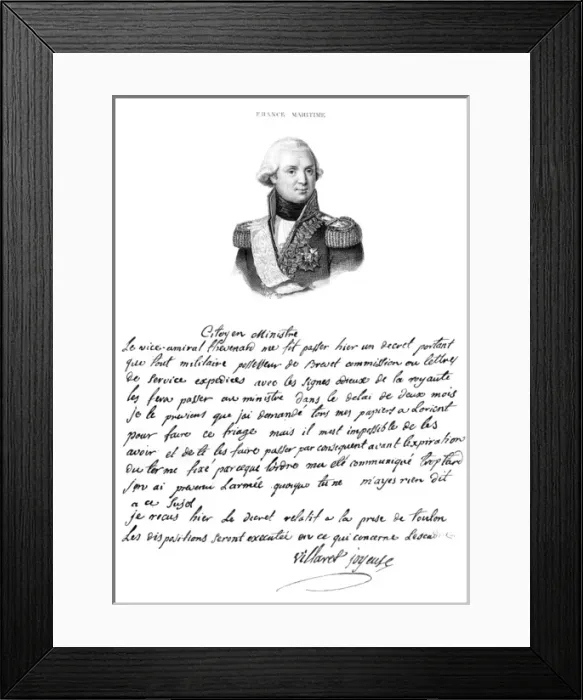 FRANCE MARITIME
Citoyen Ministre
Le vice-amiral thevenard me fit passer hier un decret portant
que tout militaire possesseur de Brevet commission ou lettres
de service expediees avec les signes odieux de la royauté
les fera passer au ministre dans le delai de deux mois
je te previens que j'ai demandé tous mes papiers a Lorient
pour faire ce triage mais il m'est impossible de les
avoir et de te les faire passer par consequent avant l'expiration
du terme fixé parceque l'ordre m'a eté communiqué trop tard
j'en ai prevenu l'armée quoique tu ne m'ayes rien dit
a ce sujet
je recus hier le decret relatif a la prise de toulon
Les dispositions seront executée en ce qui concerne L'escadre
Villaret joyeuse